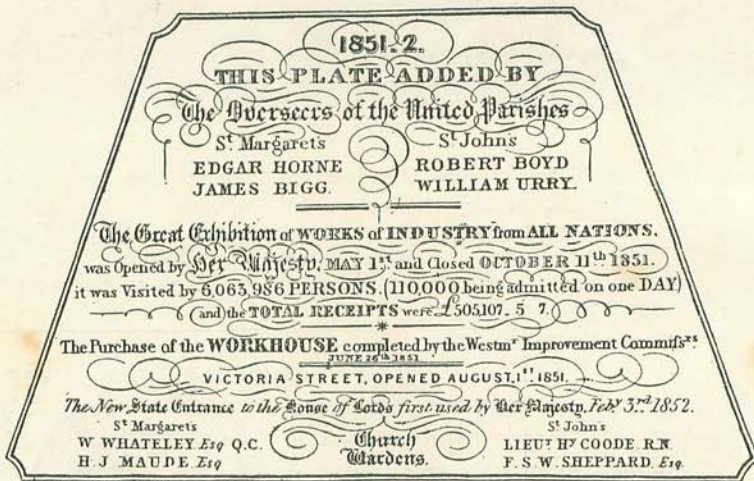 1851.2.
THIS PLATE ADDED BY
The Overseers of the United Parishes
St Margaret's St John's
EDGAR HORNE ROBERT BOYD
JAMES BIGG. WILLIAM URRY.
The Great Exhibition of WORKS of INDUSTRY from ALL NATIONS.
was Opened by Her Majesty, MAY 1st and Closed OCTOBER 11th 1851.
it was Visited by 6,063,986 PERSONS. (110,000 being admitted on one DAY)
and the TOTAL RECEIPTS were £505,107. 5 7.
The Purchase of the WORKHOUSE completed by the Westmr Improvement Commissrs
JUNE 26th 1851
VICTORIA STREET, OPENED AUGUST, 1st 1851.
The New State Entrance to the House of Lords first used by Her Majesty, Feby 3rd 1852.
St Margaret's St John's
W WHATELEY Esq Q.C. Church LIEUT Hy COODE R.N.
H. J MAUDE, Esq Wardens. F. S. W. SHEPPARD, Esq.